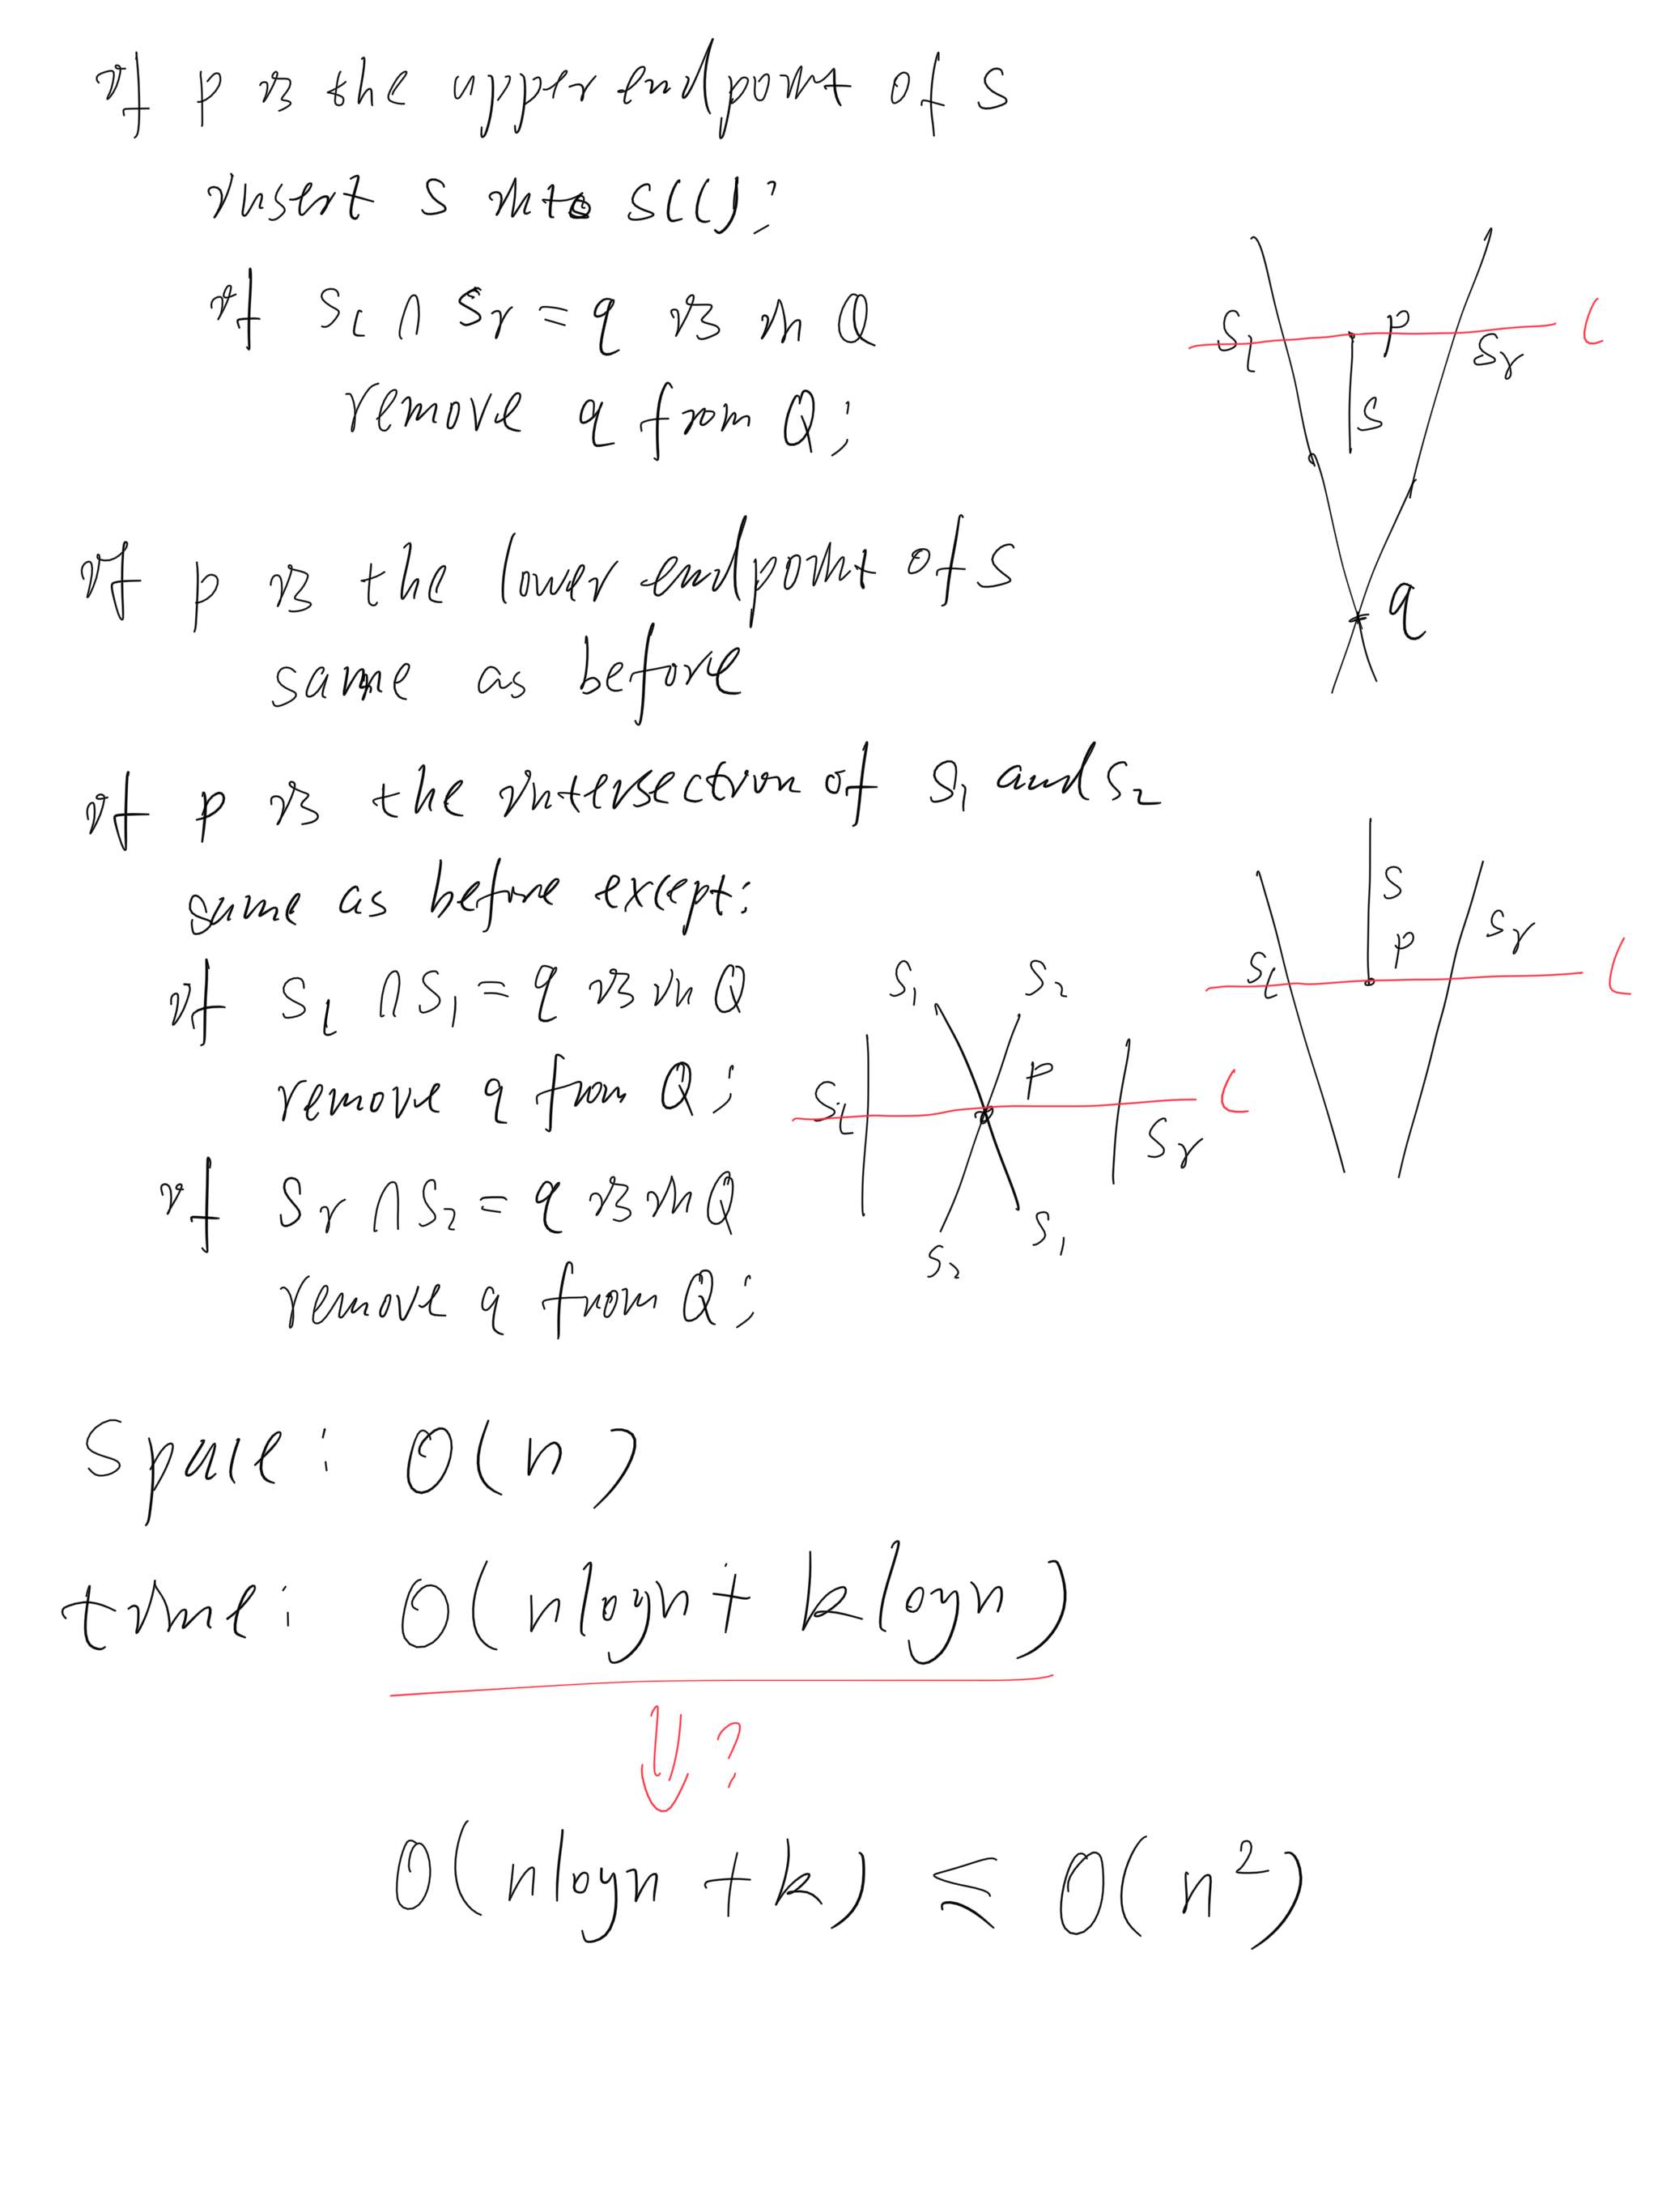 if p is the upper endpoint of s
insert s into s(l);
if sₗ ∩ sᵣ = q is in Q
remove q from Q;
sₗ p sᵣ l
s
q
if p is the lower endpoint of s
same as before
if p is the intersection of s₁ and s₂
same as before except:
s
sₗ p sᵣ l
if sₗ ∩ s₁ = q is in Q
remove q from Q;
if sᵣ ∩ s₂ = q is in Q
remove q from Q;
s₁ s₂
sₗ p sᵣ l
s₂ s₁
Space: O(n)
time: O(nlogn + klogn)
⇓ ?
O(nlogn + k) ≤ O(n²)